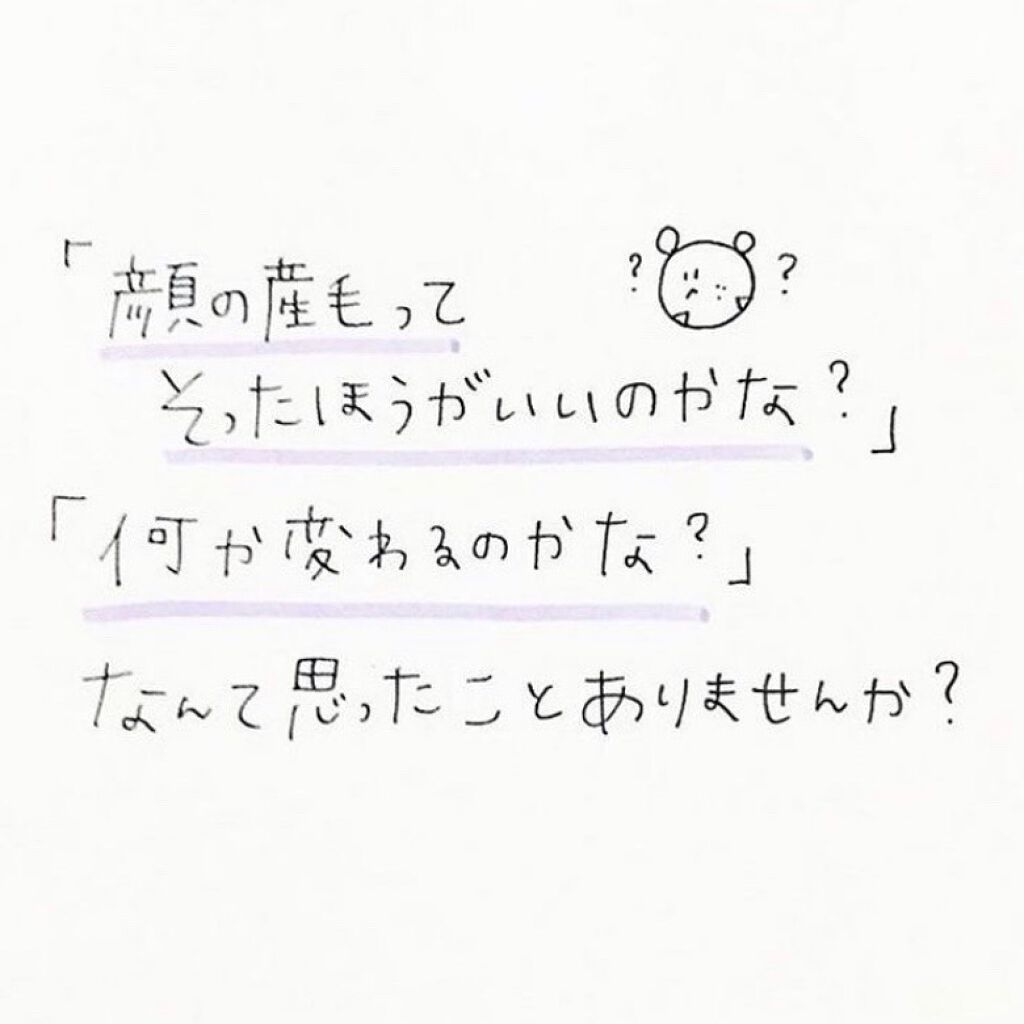 「顔の産毛って
? ?
そったほうがいいのかな?」
「何か変わるのかな?」
なんて思ったことありませんか?